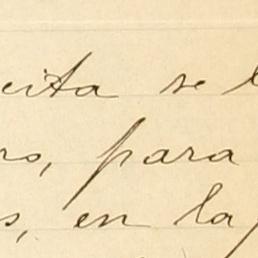 eita se
os, para
s, en la